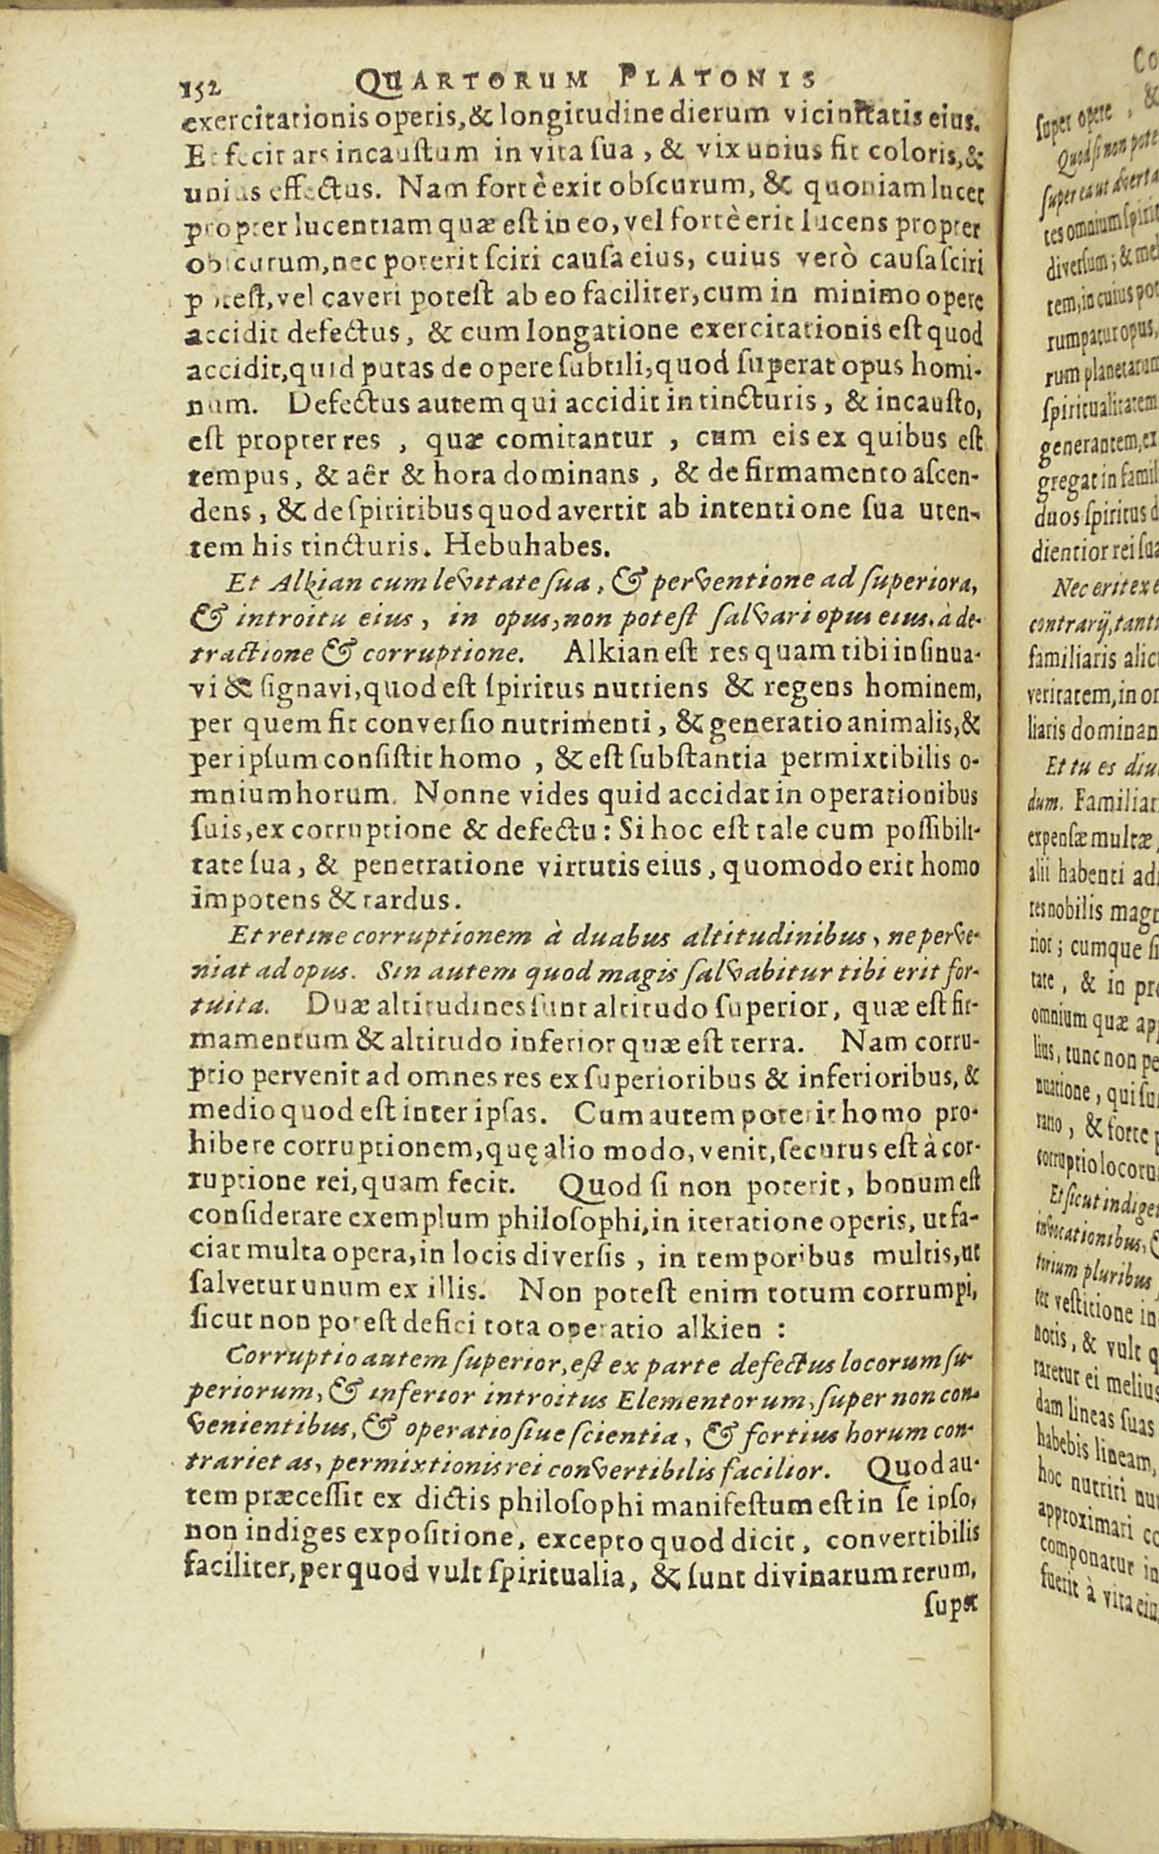 152 QUARTORUM PLATONIS
exercitationis operis, & longitudine dierum vicinitatis eius.
Et fecit ars incaustum in vita sua, & vix unius fit coloris, &
unius effectus. Nam fortè exit obscurum, & quoniam lucet
propter lucentiam quæ est in eo, vel fortè erit lucens propter
obscurum, nec poterit sciri causa eius, cuius verò causa sciri
potest, vel caveri potest ab eo faciliter, cum in minimo opere
accidit defectus, & cum longatione exercitationis est quod
accidit, quid putas de opere subtili, quod superat opus homi-
num. Defectus autem qui accidit in tincturis, & incausto,
est propter res, quæ comitantur, cum eis ex quibus est
tempus, & aêr & hora dominans, & de firmamento ascen-
dens, & de spiritibus quod avertit ab intentione sua uten-
tem his tincturis. Hebuhabes.
Et Alkian cum levitate sua, & perventione ad superiora,
& introitu eius, in opus, non potest salvari opus eius, à de-
tractione & corruptione. Alkian est res quam tibi insinua-
vi & signavi, quod est spiritus nutriens & regens hominem,
per quem fit conversio nutrimenti, & generatio animalis, &
per ipsum consistit homo, & est substantia permixtibilis o-
mnium horum. Nonne vides quid accidat in operationibus
suis, ex corruptione & defectu: Si hoc est tale cum possibili-
tate sua, & penetratione virtutis eius, quomodo erit homo
impotens & tardus.
Et retine corruptionem à duabus altitudinibus, ne perve-
niat ad opus. Sin autem quod magis salvabitur tibi erit for-
tuita. Duæ altitudines sunt altitudo superior, quæ est fir-
mamentum & altitudo inferior quæ est terra. Nam corru-
ptio pervenit ad omnes res ex superioribus & inferioribus, &
medio quod est inter ipsas. Cum autem poterit homo pro-
hibere corruptionem, quę alio modo, venit, securus est à cor-
ruptione rei, quam fecit. Quod si non poterit, bonum est
considerare exemplum philosophi, in iteratione operis, ut fa-
ciat multa opera, in locis diversis, in temporibus multis, ut
salvetur unum ex illis. Non potest enim totum corrumpi,
sicut non potest defici tota operatio alkien:
Corruptio autem superior, est ex parte defectus locorum su-
periorum, & inferior introitus Elementorum, super non con-
venientibus, & operatio sive scientia, & fortius horum con-
trarietas, permixtionis rei convertibilis facilior. Quod au-
tem præcessit ex dictis philosophi manifestum est in se ipso,
non indiges expositione, excepto quod dicit, convertibilis
faciliter, per quod vult spiritualia, & sunt divinarum rerum,
super
Co
super opere, &
Quod si non pote
super ea ut averta
tes omnium spirit
diversum; & mel
tem, in cuius pot
rumpatur opus,
rum planetarum
spiritualitatem
generantem, ex
gregat in famil
duos spiritus d
dientior rei sua
Nec erit ex e
contrarij, tanti
familiaris alic
veritatem, in o
liaris dominan
Et tu es diu
dum. Familiar
expensæ multæ,
alii habenti ad
res nobilis mag
rior; cumque si
tate, & in pr
omnium quæ app
lius, tunc non pe
nuatione, qui su
ratio, & forte p
corruptio locoru
Et sicut indiget
invocationibus, &
tirium pluribus
ter vestitione in
notis, & vult q
raretur ei melius
dam lineas suas
habebis lineam,
hoc nutriri nu
approximari co
componatur in
fuerit à vita eiu